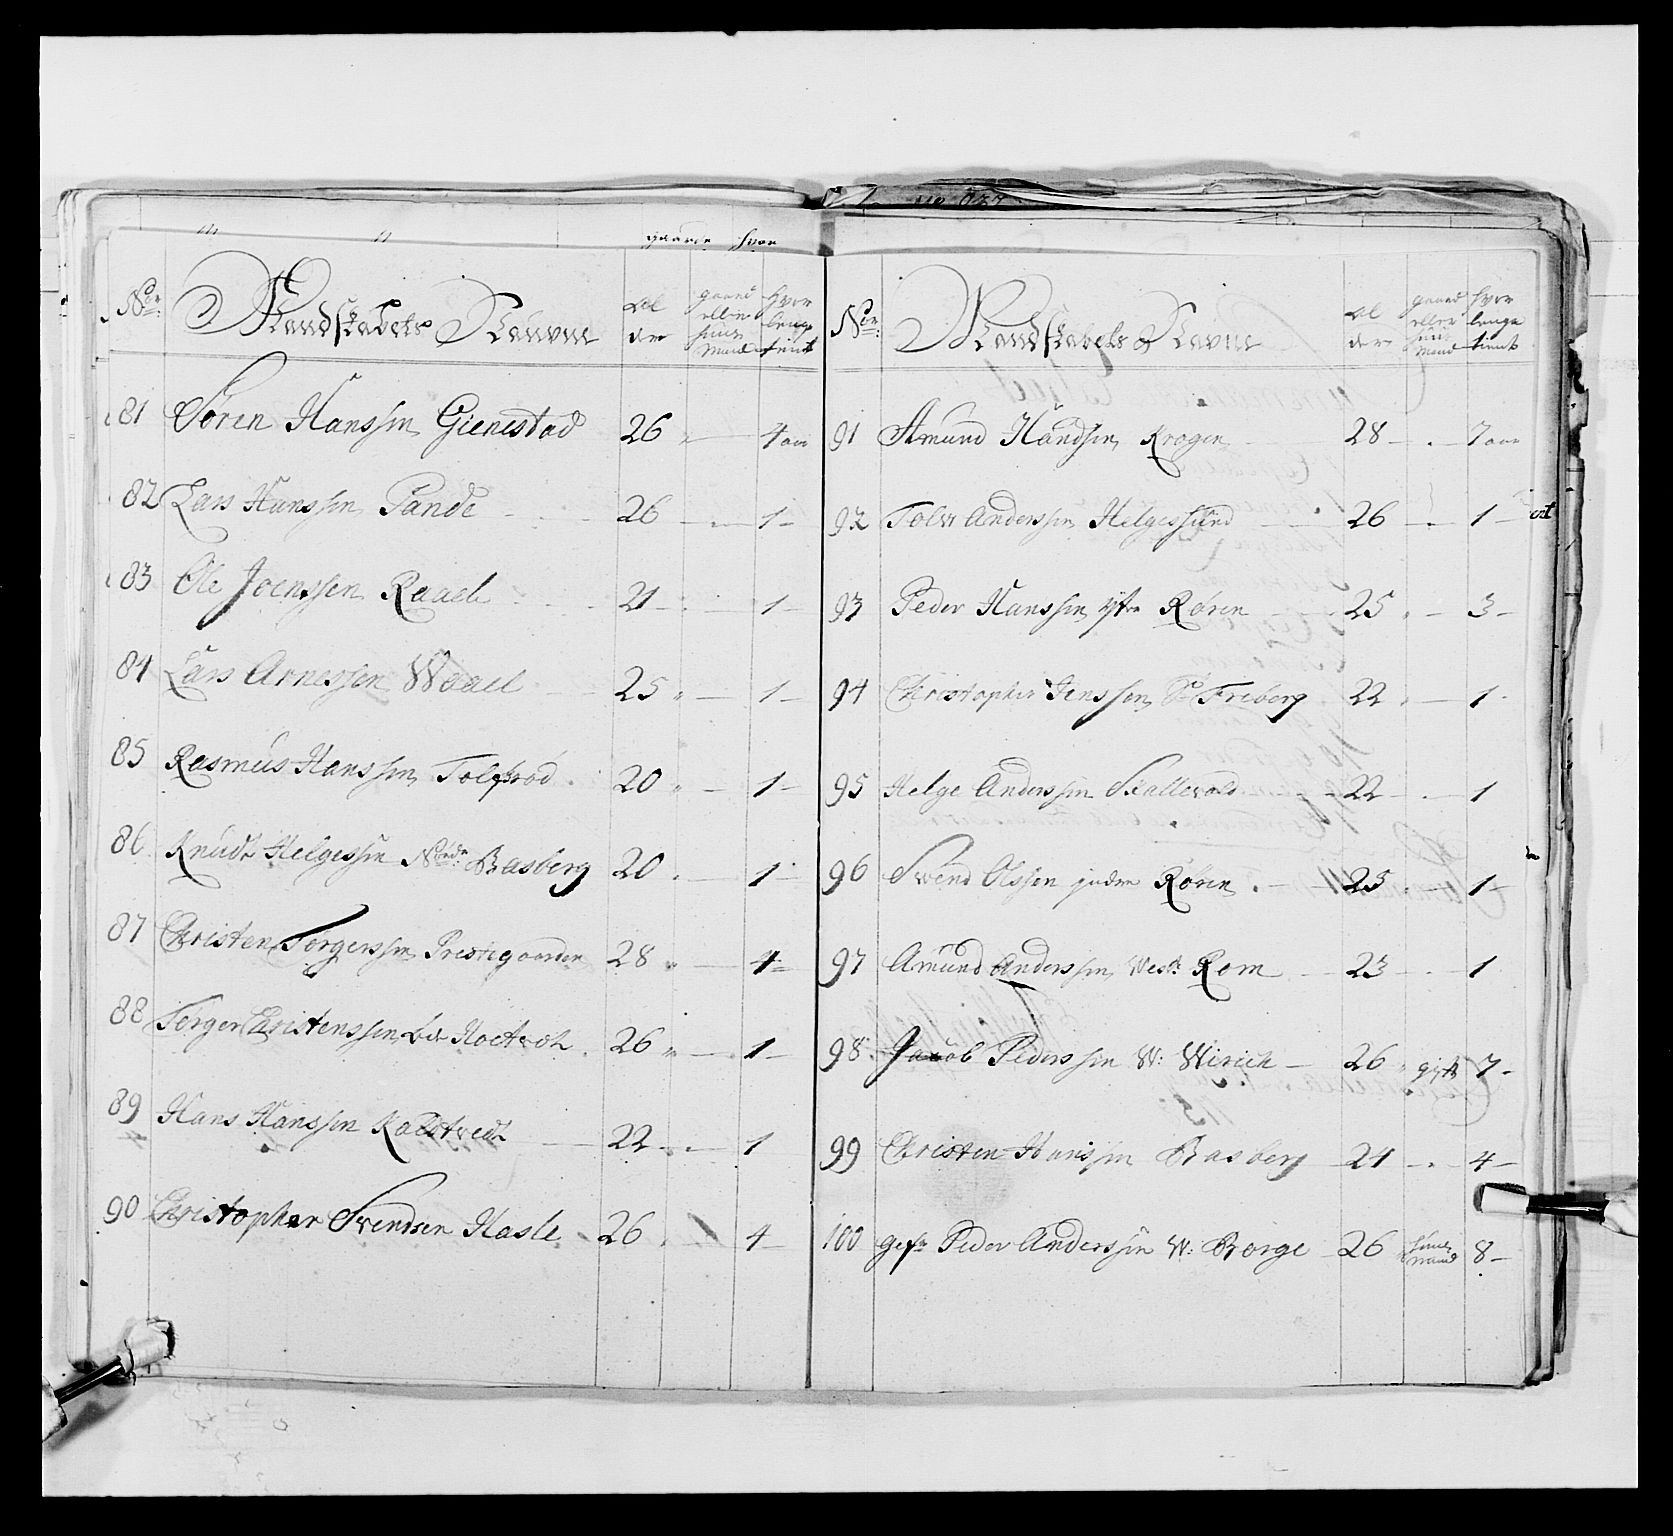 Nor: Mandskabets Navne Al der gaard eller huus Mand hvor lenge tient
81 Søren Hanssen Gienestad 26 4 aar
82 Lars Hanssen Tande 26 1
83 Ole Joenssen Raael 21 1
84 Lars Arnessen Waael 25 1
85 Rasmus Hanssen Tolfsrød 20 1
86 Knudt Helgessen Nordr: Basberg 20 1
87 Christen Torgerssen Prestegaarden 28 4
88 Torger Christenssen 26 1
89 Hans Hanssen Kalstvedt 22 1
90 Christopher Svendsen Hasle 26 4
Nor: Mandskabets Navne Al der gaard eller huus Mand hvor lenge tient
91 Amund Handsen Krogen 28 7 aar
92 Tolv Anderssen Helgessund 26 1
93 Peder Hanssen ytre Røren 25 3
94 Christopher Jenssen Freberg 22 1
95 Helge Anderssen Skallevold 22 1
96 Svend Olssen indre Røren 25 1
97 Amund Anderssen West: Rom 23 1
98 Jacob Pederssen W: Wirich 26 gift 7
99 Christen Hanssen Basberg 24 4
100 gefr Peder Anderssen W: Borge 26 huus mand 8